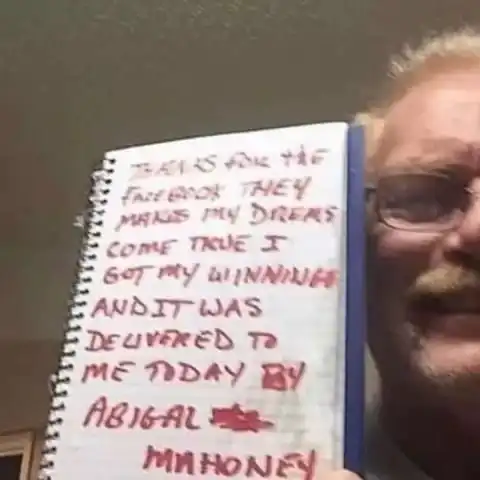 THANKS FOR THE
FACEBOOK THEY
MAKES MY DREMS
COME TRUE I
GOT MY WINNINGS
AND IT WAS
DELIVERED TO
ME TODAY BY
ABIGAL
MAHONEY